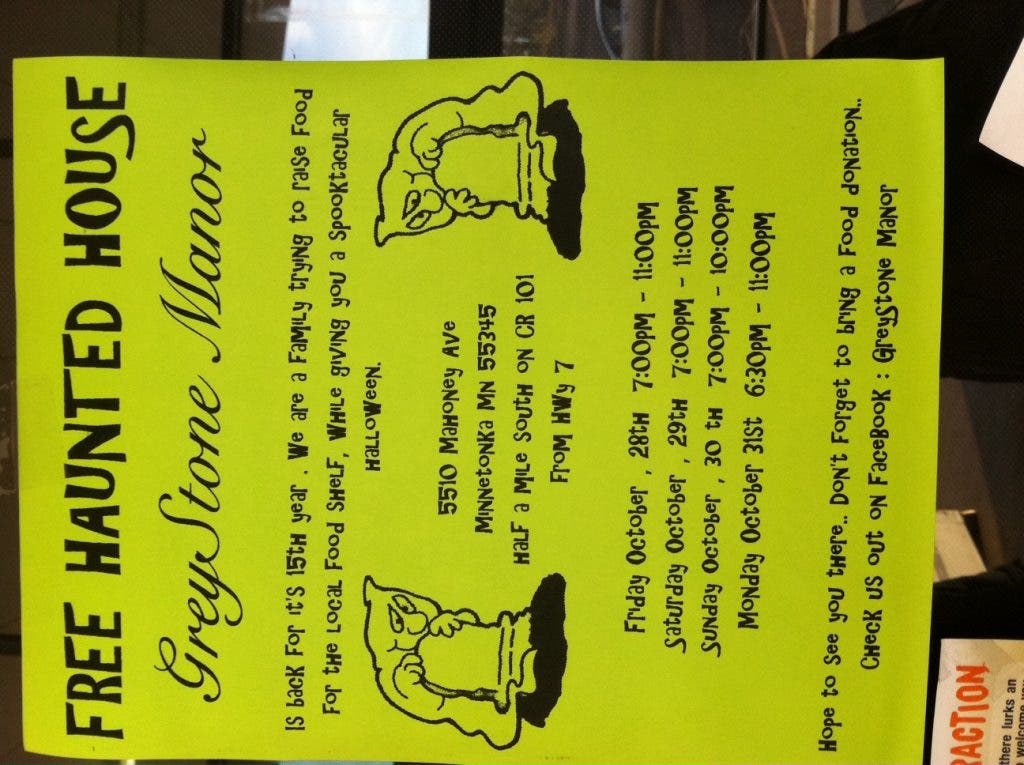 FREE HAUNTED HOUSE
GreyStone Manor
IS back For it's 15th year . We are a Family trying to raise Food
For the Local Food Shelf, While giving you a Spooktacular
Halloween.
5510 Mahoney Ave
Minnetonka MN 55345
Half a Mile South on CR 101
From HWy 7
Friday October , 28th 7:00pm - 11:00pm
Saturday October , 29th 7:00pm - 11:00pm
Sunday October , 30 th 7:00pm - 10:00pm
Monday October 31st 6:30pm - 11:00pm
Hope to See you there.. Don't Forget to bring a Food donation..
Check us out on FaceBook : GreyStone Manor
RACTION
there lurks an